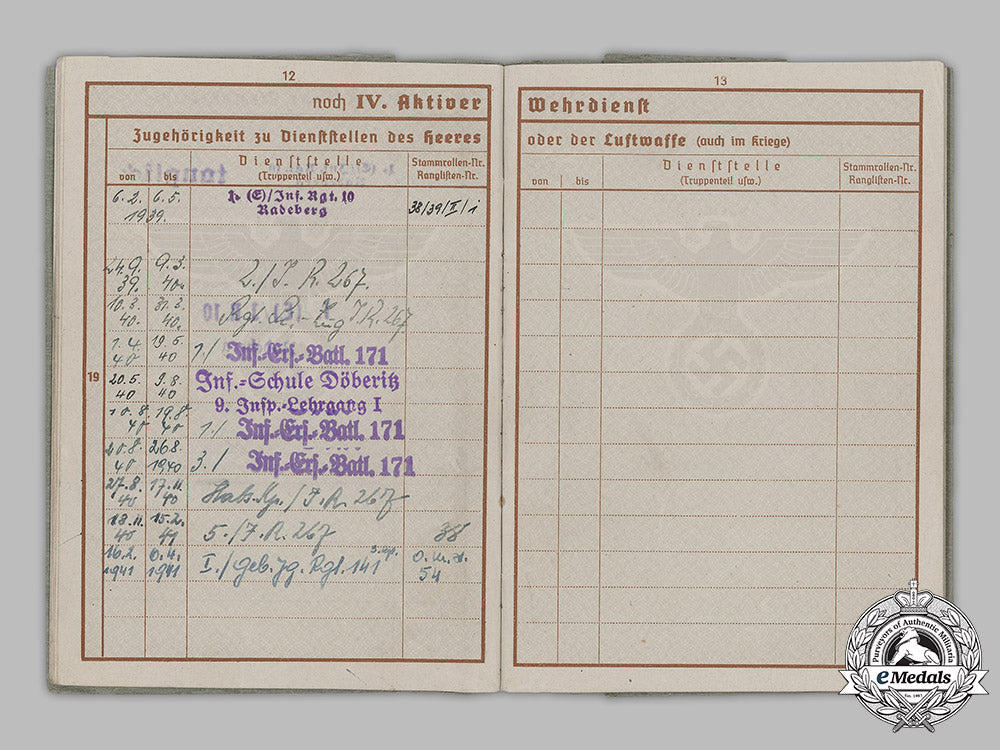 12
noch IV. Aktiver
Zugehörigkeit zu Dienststellen des Heeres
von bis
Dienststelle
(Truppenteil usw.)
Stammrollen-Nr.
Ranglisten-Nr.
6.2. 6.5.
1939.
1. (E)/Inf. Rgt. 10
Radeberg
38/39/II/1
24.9. 9.3.
39. 40.
2./I.R. 267.
10.3. 31.3.
40. 40.
Zug I.R. 267
1.4. 19.5.
40 40
1./ Inf.-Ers.-Batl. 171
19
20.5. 9.8.
40 40
Inf.-Schule Döberitz
9. Insp.-Lehrgang I
10.8. 19.8.
40 40
1./ Inf.-Ers.-Batl. 171
20.8. 26.8.
40 1940
3./ Inf.-Ers.-Batl. 171
27.8. 17.11.
40 40
Stabs.Kp./I.R. 267
18.11. 15.2.
40 41
5./I.R. 267
38
16.2. 6.4.
1941 1941
I./Geb. Jg. Rgt. 141
54
13
Wehrdienst
oder der Luftwaffe (auch im Kriege)
von bis
Dienststelle
(Truppenteil usw.)
Stammrollen-Nr.
Ranglisten-Nr.
Purveyors of Authentic Militaria
eMedals
Est. 1967